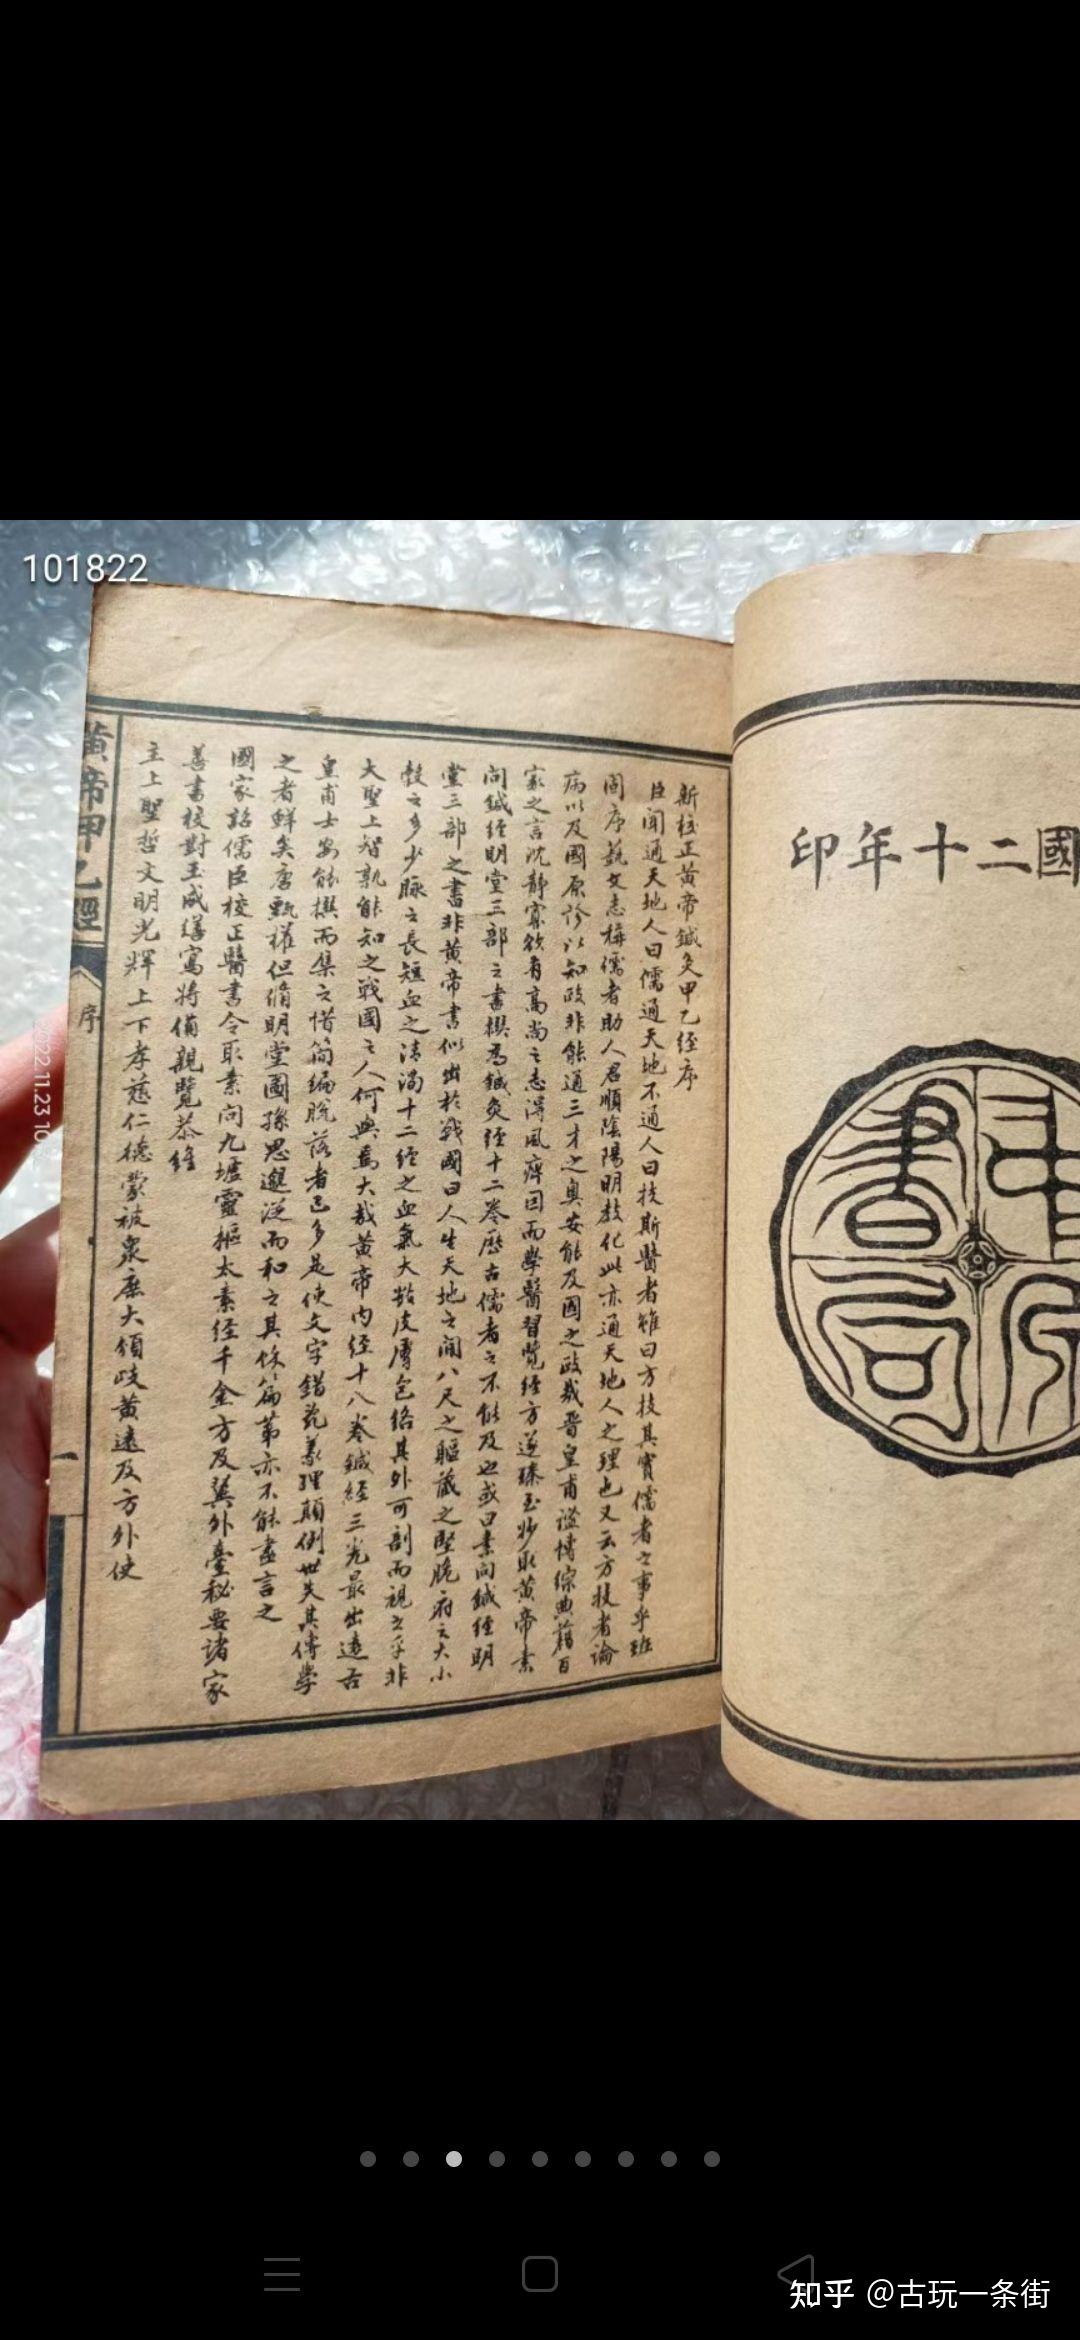 101822
國二十年印
中
書
局
新校正黃帝鍼灸甲乙經序
臣聞通天地人曰儒通天地不通人曰技斯醫者雖曰方技其實儒者之事乎班
固序藝文志稱儒者助人君順陰陽明教化此亦通天地人之理也又云方技者論
病以及國原診以知政非能通三才之奧安能及國之政哉晉皇甫謐博綜典籍百
家之言沈靜寡欲有高尚之志得風痹因而學醫習覽經方遂臻至妙取黃帝素
問鍼經明堂三部之書撰為鍼灸經十二卷歷古儒者之不能及也或曰素問鍼經明
堂三部之書非黃帝書似出於戰國曰人生天地之間八尺之軀藏之堅脆府之大小
穀之多少脉之長短血之清濁十二經之血氣大數皮膚包絡其外可剖而視之乎非
大聖上智孰能知之戰國之人何與焉大哉黃帝內經十八卷鍼經三卷最出遠古
皇甫士安能撰而集之惜簡編脫落者已多是使文字錯亂義理顛倒世失其傳學
之者鮮矣唐甄權但脩明堂圖孫思邈從而和之其餘篇第亦不能盡言之
國家詔儒臣校正醫書令取素問九墟靈樞太素經千金方及翼外臺秘要諸家
善書校對玉成繕寫將備親覽恭維
主上聖哲文明光輝上下孝慈仁德蒙被衆庶大頒岐黃遠及方外使
黃帝甲乙經
序
2022.11.23 10
知乎 @古玩一条街